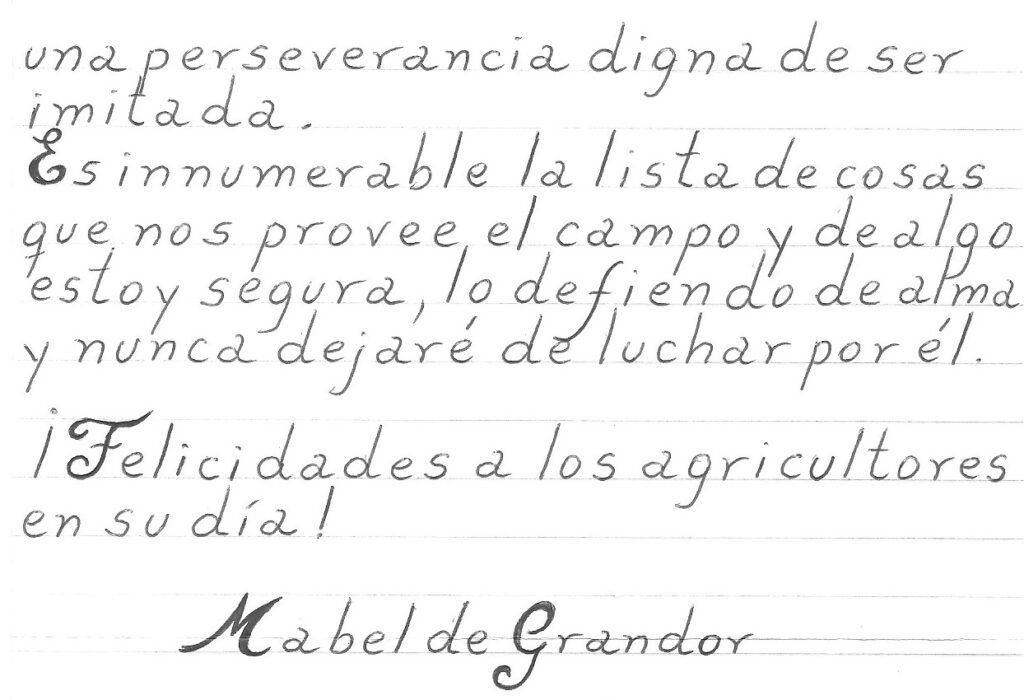 una perseverancia digna de ser
imitada.
Es innumerable la lista de cosas
que nos provee el campo y de algo
estoy segura, lo defiendo de alma
y nunca dejaré de luchar por él.
¡Felicidades a los agricultores
en su día!
Mabel de Grandor